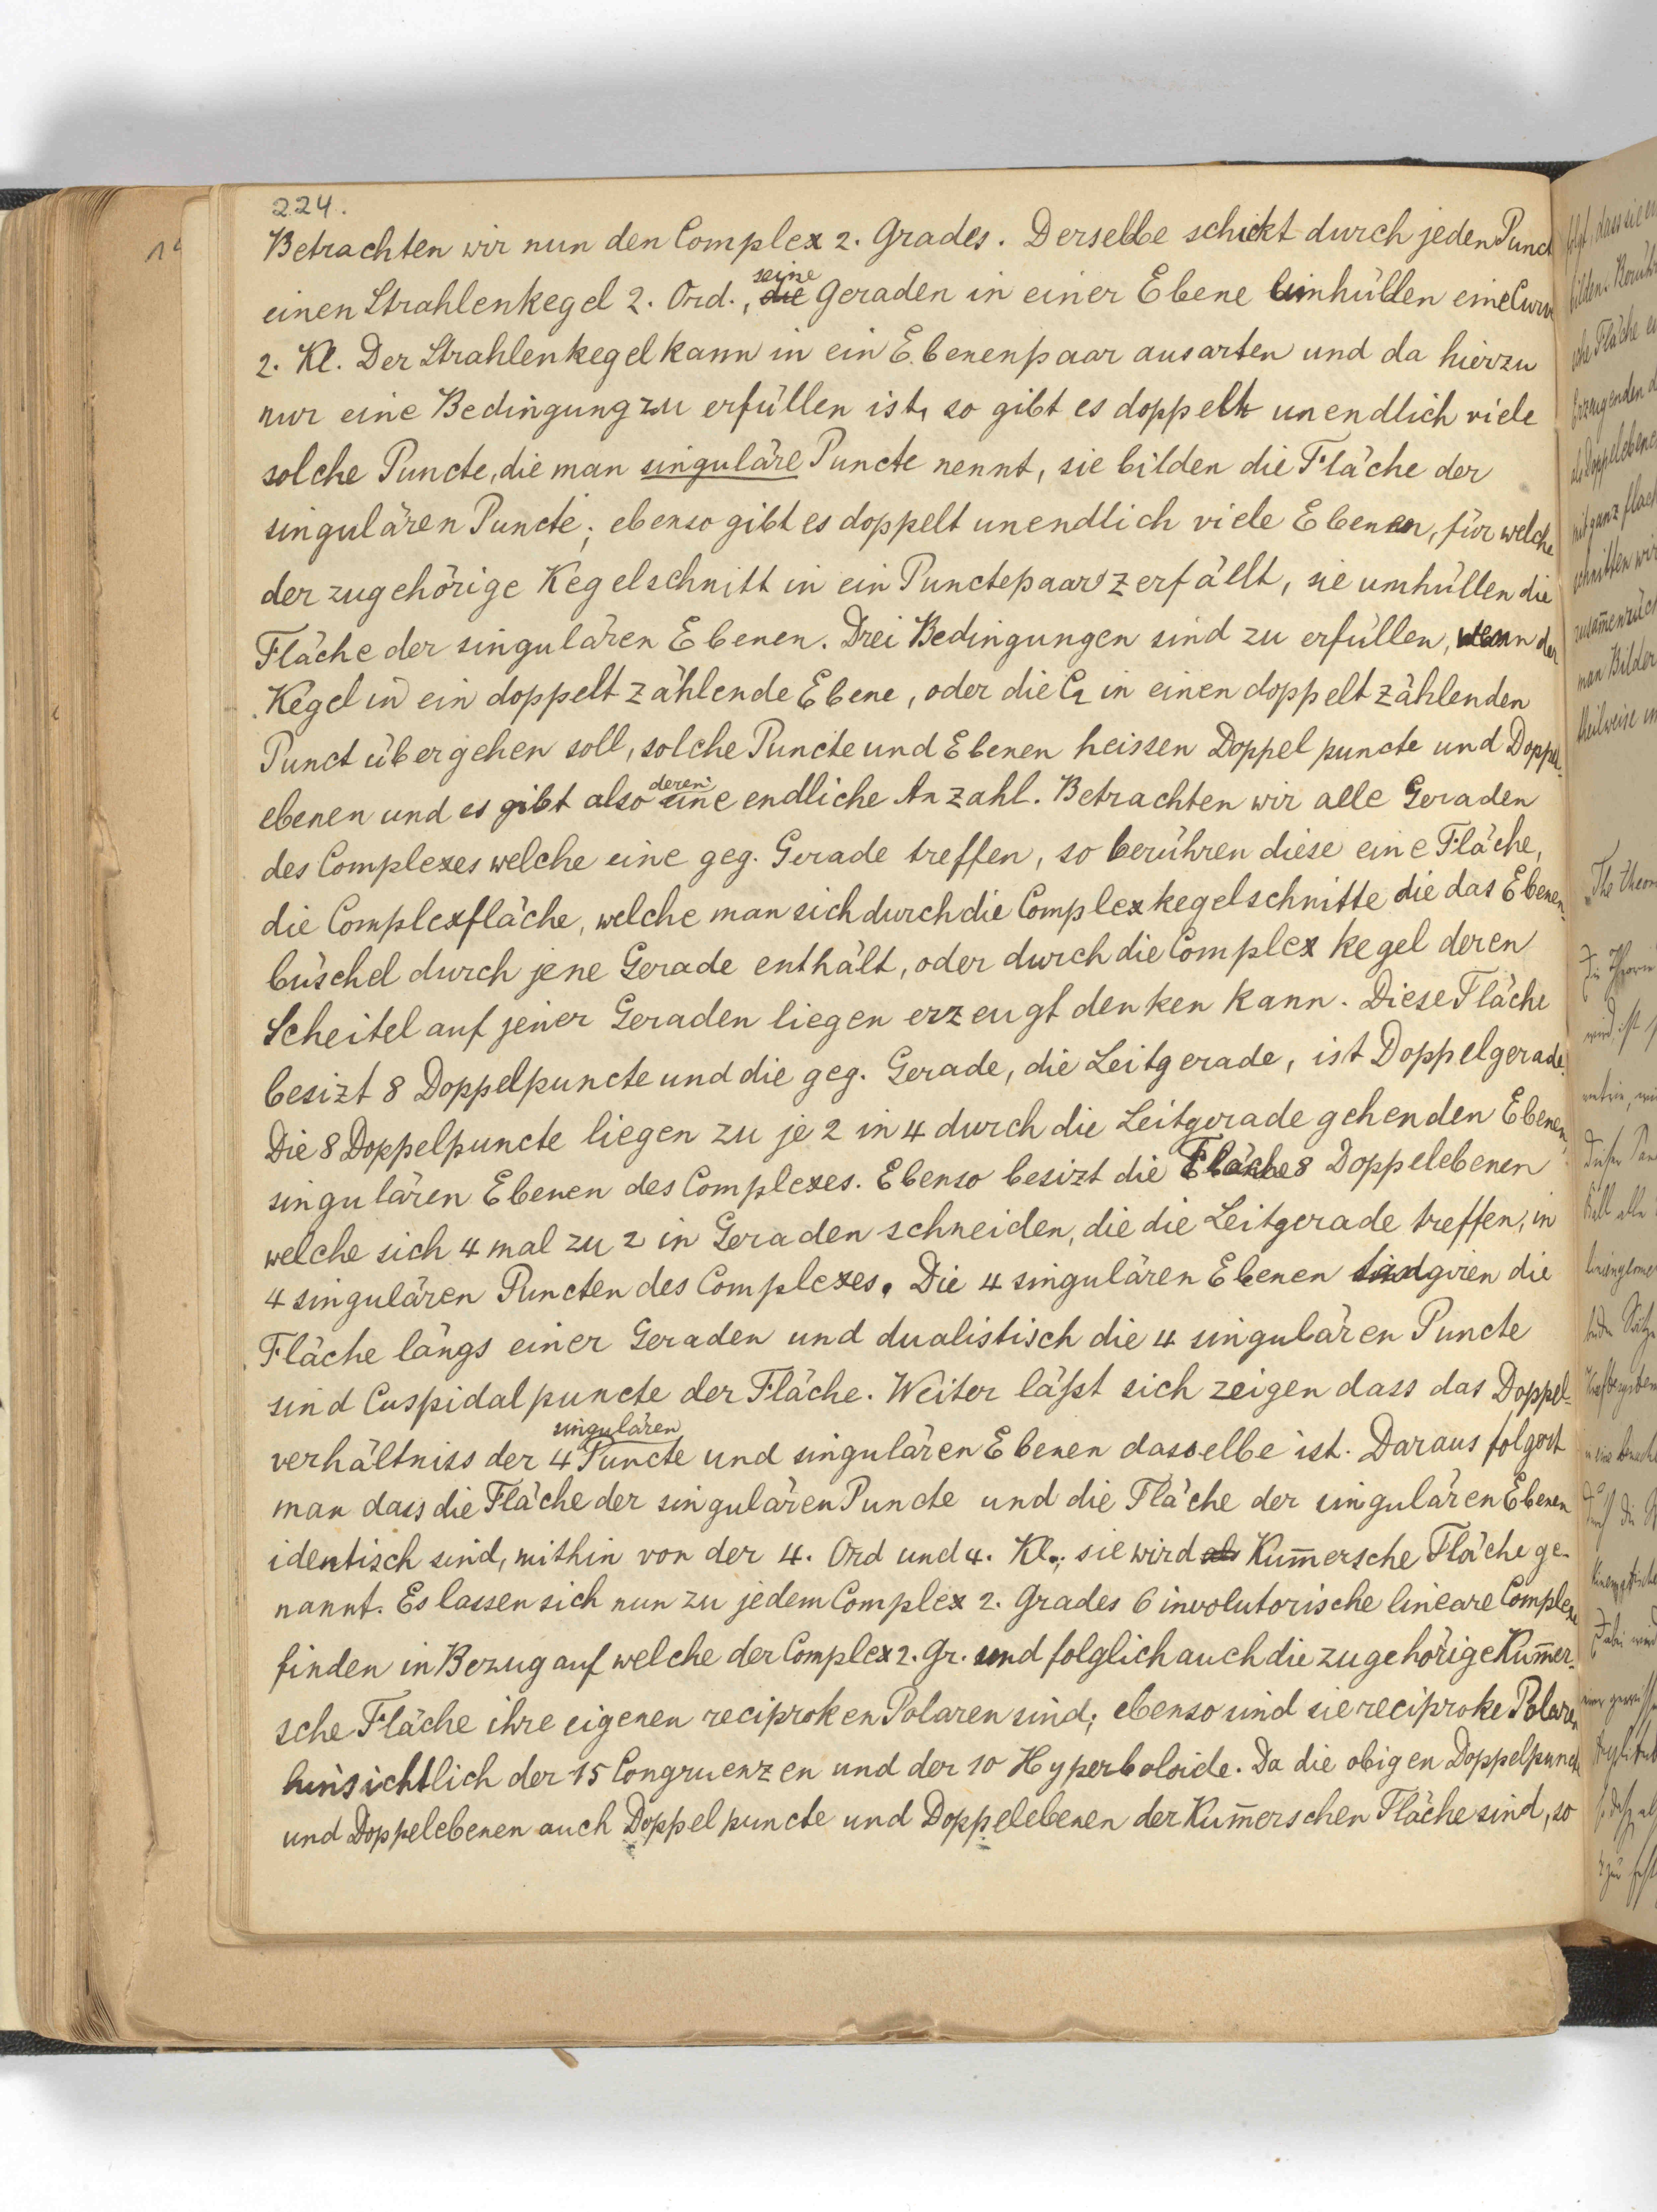 224.
Betrachten wir nun den Complex 2. Grades. Derselbe schickt durch jeden Punct
einen Strahlenkegel 2. Ord., seine Geraden in einer Ebene umhüllen eine Curve
2. Kl. Der Strahlenkegel kann in ein Ebenenpaar ausarten und da hierzu
nur eine Bedingung zu erfüllen ist, so gibt es doppelt unendlich viele
solche Puncte, die man singuläre Puncte nennt, sie bilden die Fläche der
singulären Puncte; ebenso gibt es doppelt unendlich viele Ebenen, für welche
der zugehörige Kegelschnitt in ein Punctepaar zerfällt, sie umhüllen die
Fläche der singulären Ebenen. Drei Bedingungen sind zu erfüllen, wenn der
Kegel in ein doppelt zählende Ebene, oder die C₂ in einen doppelt zählenden
Punct übergehen soll, solche Puncte und Ebenen heissen Doppelpuncte und Doppel-
ebenen und es gibt also deren eine endliche Anzahl. Betrachten wir alle Geraden
des Complexes welche eine geg. Gerade treffen, so berühren diese eine Fläche,
die Complexfläche, welche man sich durch die Complexkegelschnitte die das Ebenen-
büschel durch jene Gerade enthält, oder durch die Complexkegel deren
Scheitel auf jener Geraden liegen erzeugt denken kann. Diese Fläche
besizt 8 Doppelpuncte und die geg. Gerade, die Leitgerade, ist Doppelgerade.
Die 8 Doppelpuncte liegen zu je 2 in 4 durch die Leitgerade gehenden Ebenen,
singulären Ebenen des Complexes. Ebenso besizt die Fläche 8 Doppelebenen
welche sich 4 mal zu 2 in Geraden schneiden, die die Leitgerade treffen, in
4 singulären Puncten des Complexes. Die 4 singulären Ebenen tangiren die
Fläche längs einer Geraden und dualistisch die 4 singulären Puncte
sind Cuspidalpuncte der Fläche. Weiter läßt sich zeigen dass das Doppel-
verhältniss der 4 singulären Puncte und singulären Ebenen dasselbe ist. Daraus folgert
man dass die Fläche der singulären Puncte und die Fläche der singulären Ebenen
identisch sind, mithin von der 4. Ord und 4. Kl.; sie wird als Kum̄ersche Fläche ge-
nannt. Es lassen sich nun zu jedem Complex 2. Grades 6 involutorische lineare Complexe
finden in Bezug auf welche der Complex 2. Gr. und folglich auch die zugehörige Kum̄er-
sche Fläche ihre eigenen reciproken Polaren sind; ebenso sind sie reciproke Polaren
hinsichtlich der 15 Congruenzen und der 10 Hyperboloide. Da die obigen Doppelpuncte
und Doppelebenen auch Doppelpuncte und Doppelebenen der Kum̄erschen Fläche sind, so